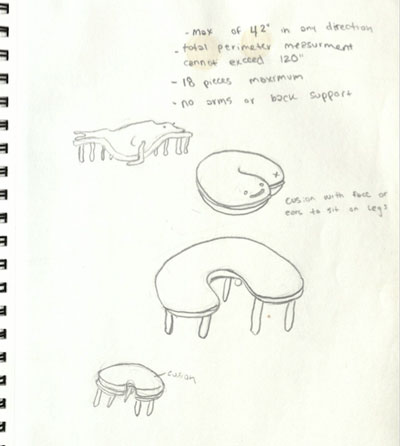 - Max of 42" in any direction
- total perimeter measurment
cannot exceed 120"
- 18 pieces maximum
- no arms or back support
cusion with face or
ears to sit on legs
cusion